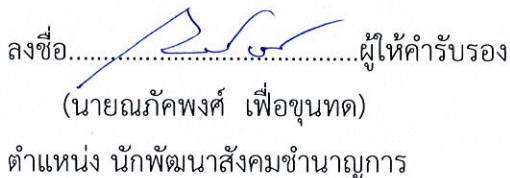 ลงชื่อ..........................................ผู้ให้คำรับรอง
(นายณภัคพงศ์ เฟื่อขุนทด)
ตำแหน่ง นักพัฒนาสังคมชำนาญการ